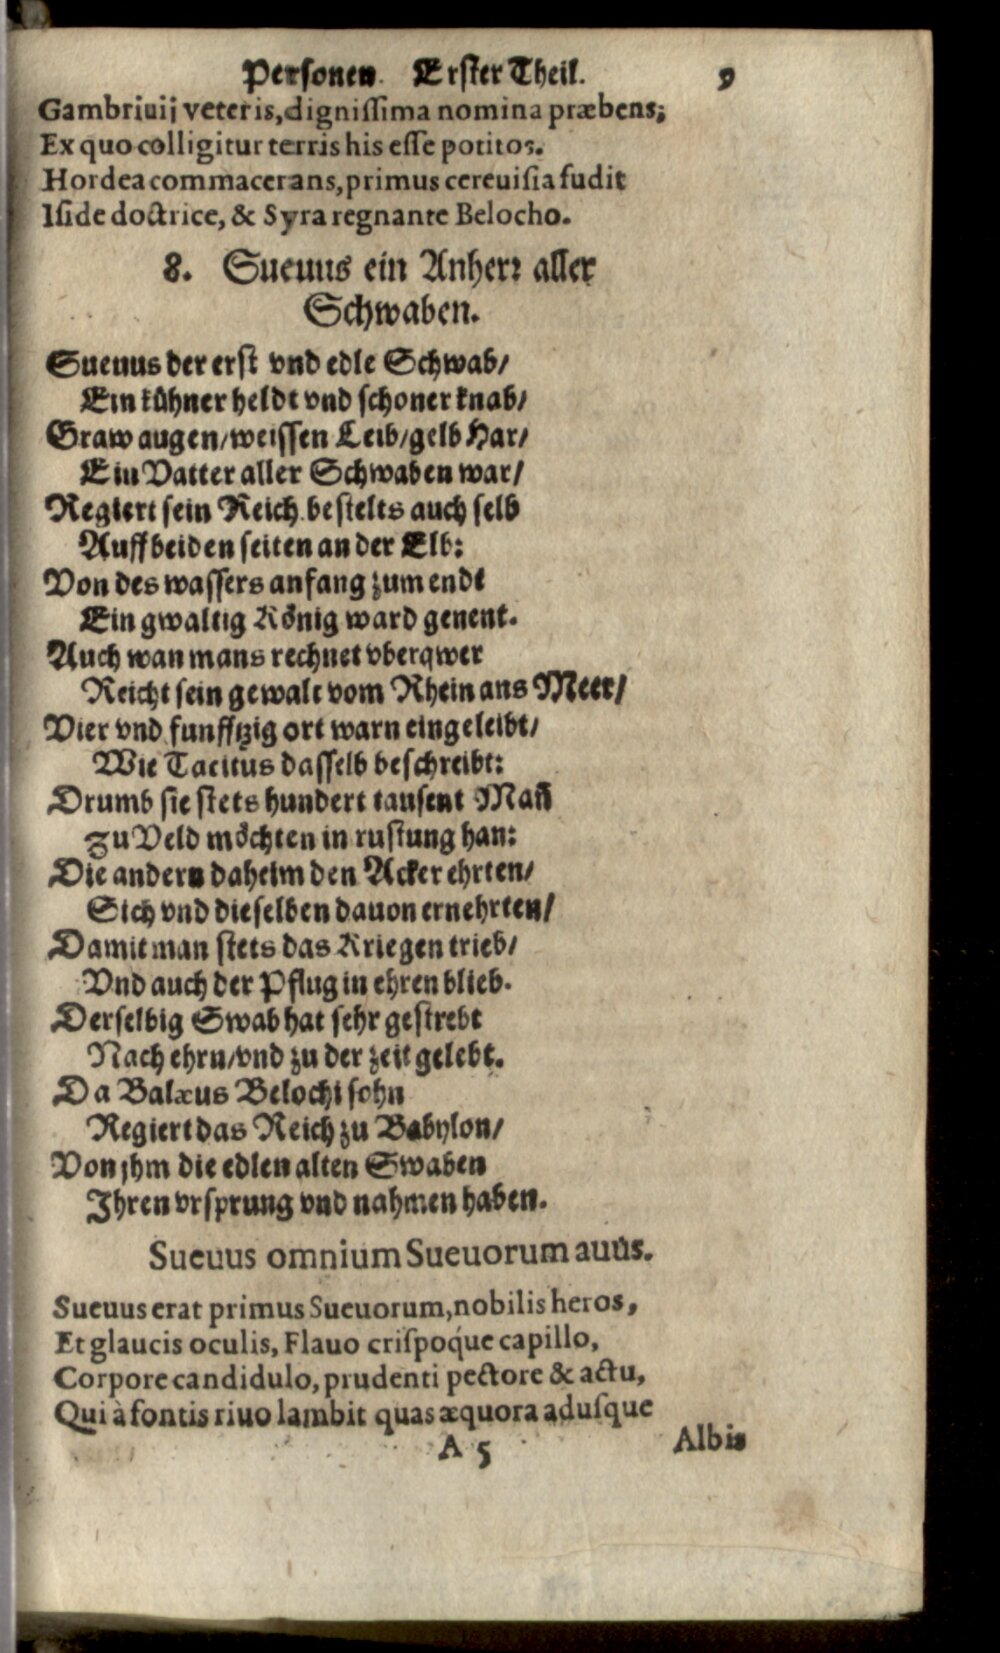 Personen. Erster Theil. 9
Gambriuij veteris, dignissima nomina præbens;
Ex quo colligitur terris his esse potitos.
Hordea commacerans, primus cereuisia fudit
Iside doctrice, & Syra regnante Belocho.
8. Sueuus ein Anherr aller
Schwaben.
Sueuus der erst vnd edle Schwab/
Ein kühner heldt vnd schoner knab/
Graw augen/weissen Leib/gelb Har/
Ein Vatter aller Schwaben war/
Regiert sein Reich bestelts auch selb
Auff beiden seiten an der Elb:
Von des wassers anfang zum endt
Ein gwaltig König ward genent.
Auch wan mans rechnet vberqwer
Reicht sein gewalt vom Rhein ans Meer/
Vier vnd funfftzig ort warn eingeleibt/
Wie Tacitus dasselb beschreibt:
Drumb sie stets hundert tausent Mañ
Zu Veld möchten in rustung han:
Die andern daheim den Acker ehrten/
Sich vnd dieselben dauon ernehrten/
Damit man stets das Kriegen trieb/
Vnd auch der Pflug in ehren blieb.
Derselbig Swab hat sehr gestrebt
Nach ehrn/vnd zu der zeit gelebt.
Da Balæus Belochi sohn
Regiert das Reich zu Babylon/
Von jhm die edlen alten Swaben
Ihren vrsprung vnd nahmen haben.
Sueuus omnium Sueuorum auus.
Sueuus erat primus Sueuorum, nobilis heros,
Et glaucis oculis, Flauo crispoq́ue capillo,
Corpore candidulo, prudenti pectore & actu,
Qui à fontis riuo lambit quas æquora adusque
A 5 Albis